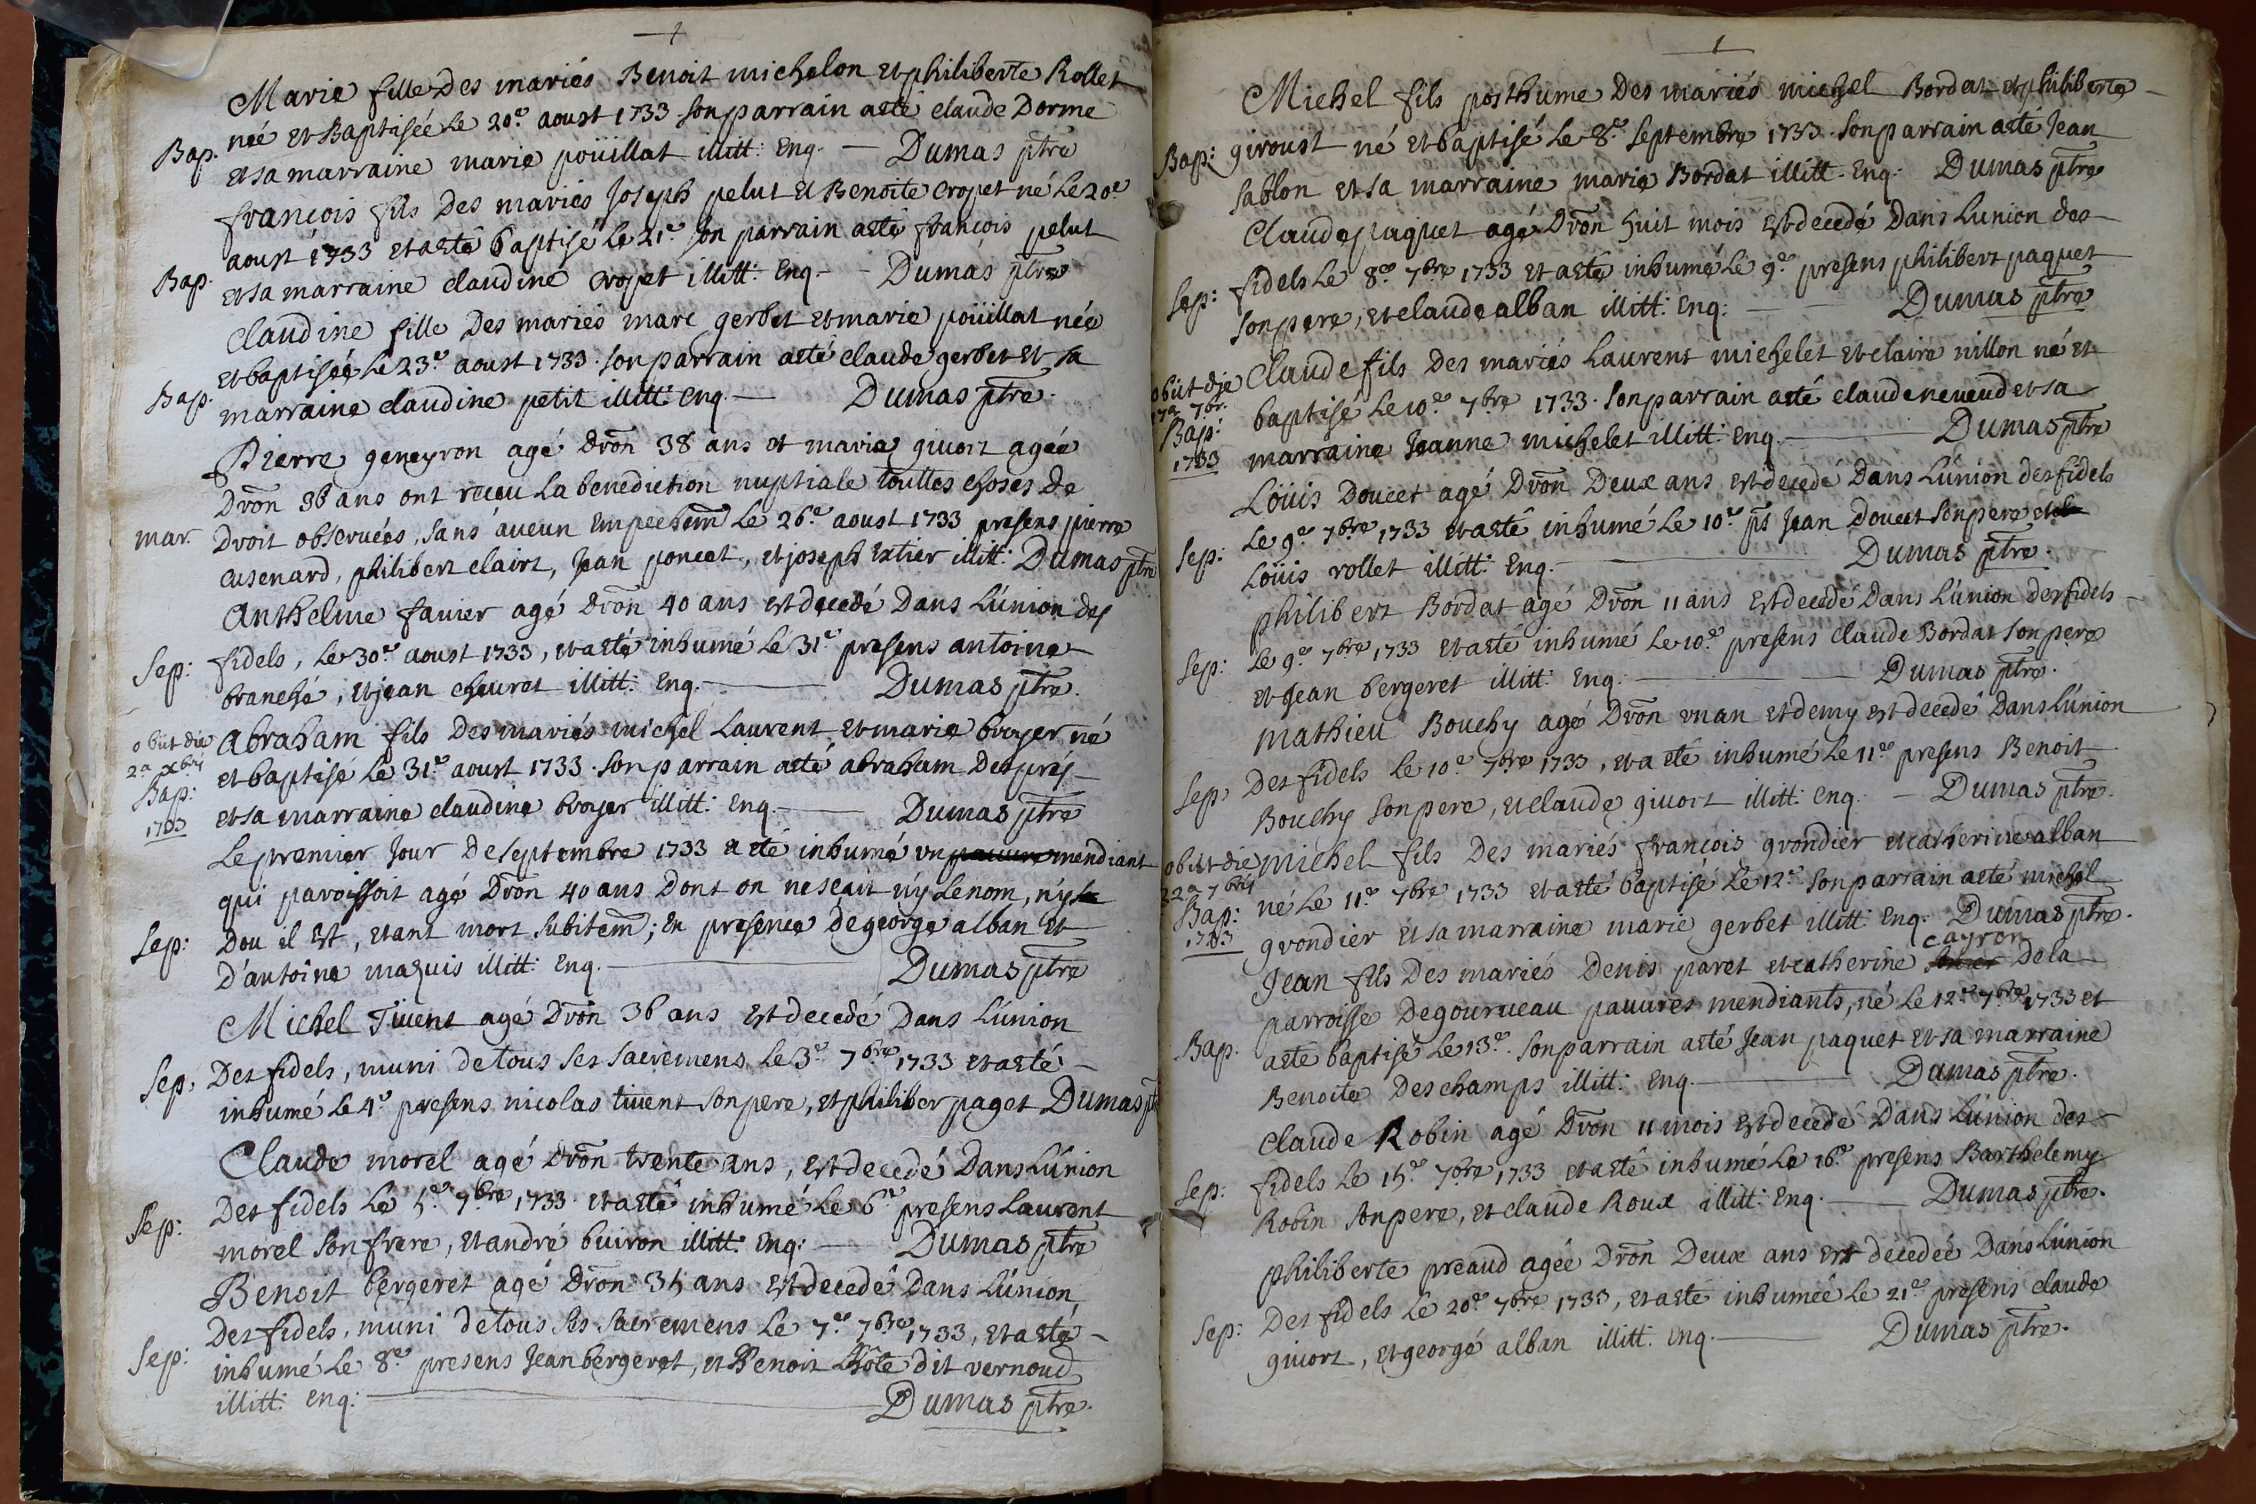 Marie fille Des mariés Benoit michelon et philiberte Rollet
Bap. née et Baptisée Le 20.e aoust 1733 son parrain aeté claude Dorme
et sa marraine marie poüillat illitt: Enq. — Dumas ptre
françois fils Des mariés Joseph pelut et Benoite cropet né Le 20.e
aoust 1733 et aeté baptisé Le 21.e son parrain aeté françois pelut
Bap. et sa marraine claudine cropet illitt: Enq. - Dumas ptre
Claudine fille Des mariés marc gerbet et marie poüillat née
et baptisée Le 23.e aoust 1733. son parrain aeté claude gerbet et sa
Bap. marraine claudine petit illitt: enq. — Dumas ptre.
Pierre geneyron agé Dron 38 ans et marie givort agée
Dron 36 ans ont receu La benediction nuptiale touttes choses De
mar. Droit observées, sans aucun Empechem Le 26.e aoust 1733 presens pierre
cusenard, philibert clairt, Jean poncet, et joseph Extier illitt: Dumas ptre
Anthelme favier agé Dron 40 ans est decedé Dans L'union des
Sep: fidels, Le 30.e aoust 1733, et aeté inhumé Le 31.e presens antoine
branche, et jean chevret illitt: Enq. — Dumas ptre.
obiit die Abraham fils Des mariés michel Laurent et marie broyer né
2a xbris et baptisé Le 31.e aoust 1733. son parrain aeté abraham Desprès
Bap: et sa marraine claudine broyer illitt: Enq. — Dumas ptre
1733
Le premier Jour De septembre 1733 a eté inhumé un pauvre mendiant
qui paroissoit agé Dron 40 ans Dont on ne sçait n'y Le nom, n'y
Sep: Dou il Est, etant mort subitem; en presence de george alban et
D'antoine mazuis illitt: Enq. — Dumas ptre
Michel Tivent agé Dron 36 ans est decedé Dans L'union
Sep, Des fidels, muni de tous ses sacremens Le 3.e 7bre 1733 et aeté —
inhumé Le 4.e presens nicolas tivent son pere, et philiber paget Dumas ptre
Claude morel agé Dron trente ans, est decedé Dans L'union
Sep: Des fidels Le 5.e 7bre 1733. et aeté inhumé Le 6.e presens Laurent
morel son frere, et andré buiron illitt: Enq: — Dumas ptre
Benoit bergeret agé Dron 35 ans est decedé Dans L'union
Des fidels, muni de tous ses sacremens Le 7.e 7bre 1733, et aeté —
Sep: inhumé Le 8.e presens Jean bergeret, et Benoit Lhôte dit vernoud
illitt: Enq: — Dumas ptre.
Michel fils posthume Des mariés michel Bordat et philiberte
Bap: giroust né et baptisé Le 8.e septembre 1733. son parrain aeté Jean
sablon et sa marraine marie Bordat illitt. Enq. Dumas ptre
Claude paquet agé Dron huit mois est decedé Dans L'union des
Sep: fidels Le 8.e 7bre 1733 et aeté inhumé Le 9.e presens philibert paquet
son pere, et claude alban illitt: Enq: — Dumas ptre
obiit die Claude fils Des mariés Laurent michelet et claire nillon né et
17a 7br. baptisé Le 10.e 7bre 1733. son parrain aeté claude neveud et sa
Bap: marraine Jeanne michelet illitt: Enq. — Dumas ptre
1733
Loüis Doucet agé Dron Deux ans est decedé Dans L'union des fidels
Sep: Le 9.e 7bre 1733 et aeté inhumé Le 10.e pts Jean Doucet son pere et
Loüis rollet illitt: Enq. — Dumas ptre.
philibert Bordat agé Dron 11 ans Est decedé Dans L'union des fidels —
Sep: Le 9.e 7bre 1733 et aeté inhumé Le 10.e presens claude Bordat son pere
et Jean bergeret illitt: Enq. — Dumas ptre.
Mathieu Bouchy agé Dron un an et demy est decedé Dans L'union
Sep, Des fidels Le 10.e 7bre 1733, et a eté inhumé Le 11.e presens Benoit
Bouchy son pere, et claude givort illitt: enq. — Dumas ptre.
obiit die michel fils Des mariés françois grondier et catherine alban
22a 7bris né Le 11.e 7bre 1733 et aeté baptisé Le 12.e son parrain aeté michel
Bap: grondier et sa marraine marie gerbet illitt: Enq. Dumas ptre.
1733
cayron
Jean fils Des mariés Denis paret et catherine De la
parroisse De gourveau pauvres mendiants, né Le 12.e 7bre 1733 et
Bap. aeté baptisé Le 13.e. son parrain aeté Jean paquet et sa marraine
Benoite Deschamps illitt: Enq. — Dumas ptre.
Claude Robin agé Dron 11 mois est decedé Dans L'union des
Sep: fidels Le 15.e 7bre 1733 et aeté inhumé Le 16.e presens Barthelemy
Robin son pere, et claude Roux illitt: Enq. — Dumas ptre.
philiberte preaud agée Dron Deux ans est decedée Dans L'union
Des fidels Le 20.e 7bre 1733, et aeté inhumée Le 21.e presens claude
Sep: givort, et george alban illitt: Enq. — Dumas ptre.